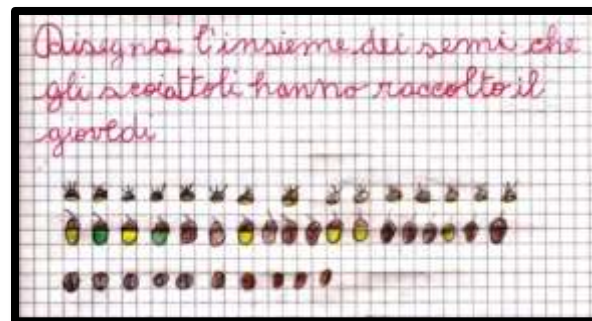 Disegna l'insieme dei semi che
gli scoiattoli hanno raccolto il
giovedi